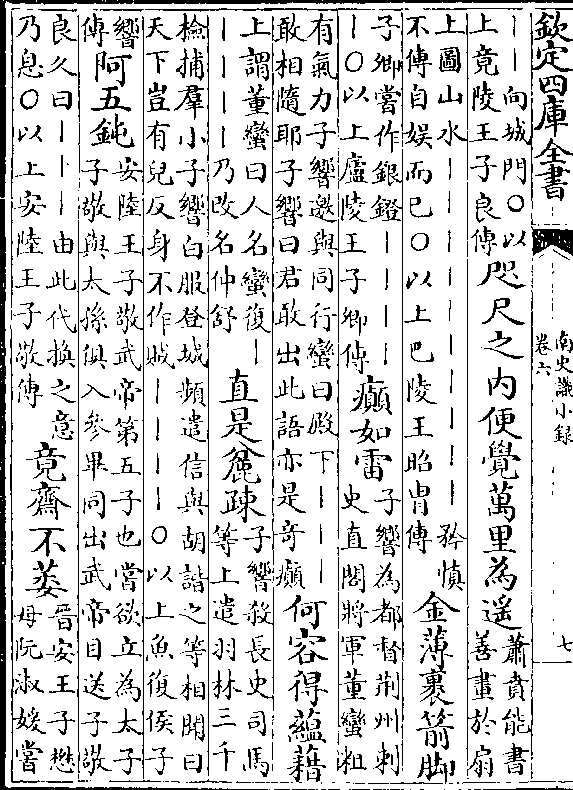 欽定四庫全書
南史識小録
卷六
七
｜｜向城門〇以
上竟陵王子良傳
咫尺之内便覺萬里為遥
蕭賁能書
善畫於扇
上圖山水｜｜｜｜｜｜｜｜｜｜矜慎
不傳自娱而已〇以上巴陵王昭胄傳
金薄裹箭脚
子卿嘗作銀鐙｜｜｜｜
｜〇以上廬陵王子卿傳
癲如雷
子響為都督荆州刺
史直閤將軍董蠻粗
有氣力子響邀與同行蠻曰殿下｜｜｜
敢相隨耶子響曰君敢出此語亦是竒癲
何容得藴藉
上謂董蠻曰人名蠻復｜
｜｜｜｜乃改名仲舒
直是麄疎
子響殺長史司馬
等上遣羽林三千
檢捕羣小子響白服登城頻遣信與胡諧之等相聞曰
天下豈有兒反身不作賊｜｜｜｜〇以上魚復侯子
響
傳
阿五鈍
安陸王子敬武帝第五子也嘗欲立為太子
子敬與太孫俱入參畢同出武帝目送子敬
良久曰｜｜｜由此代換之意
乃息〇以上安陸王子敬傳
竟齋不萎
晉安王子懋
母阮淑媛嘗